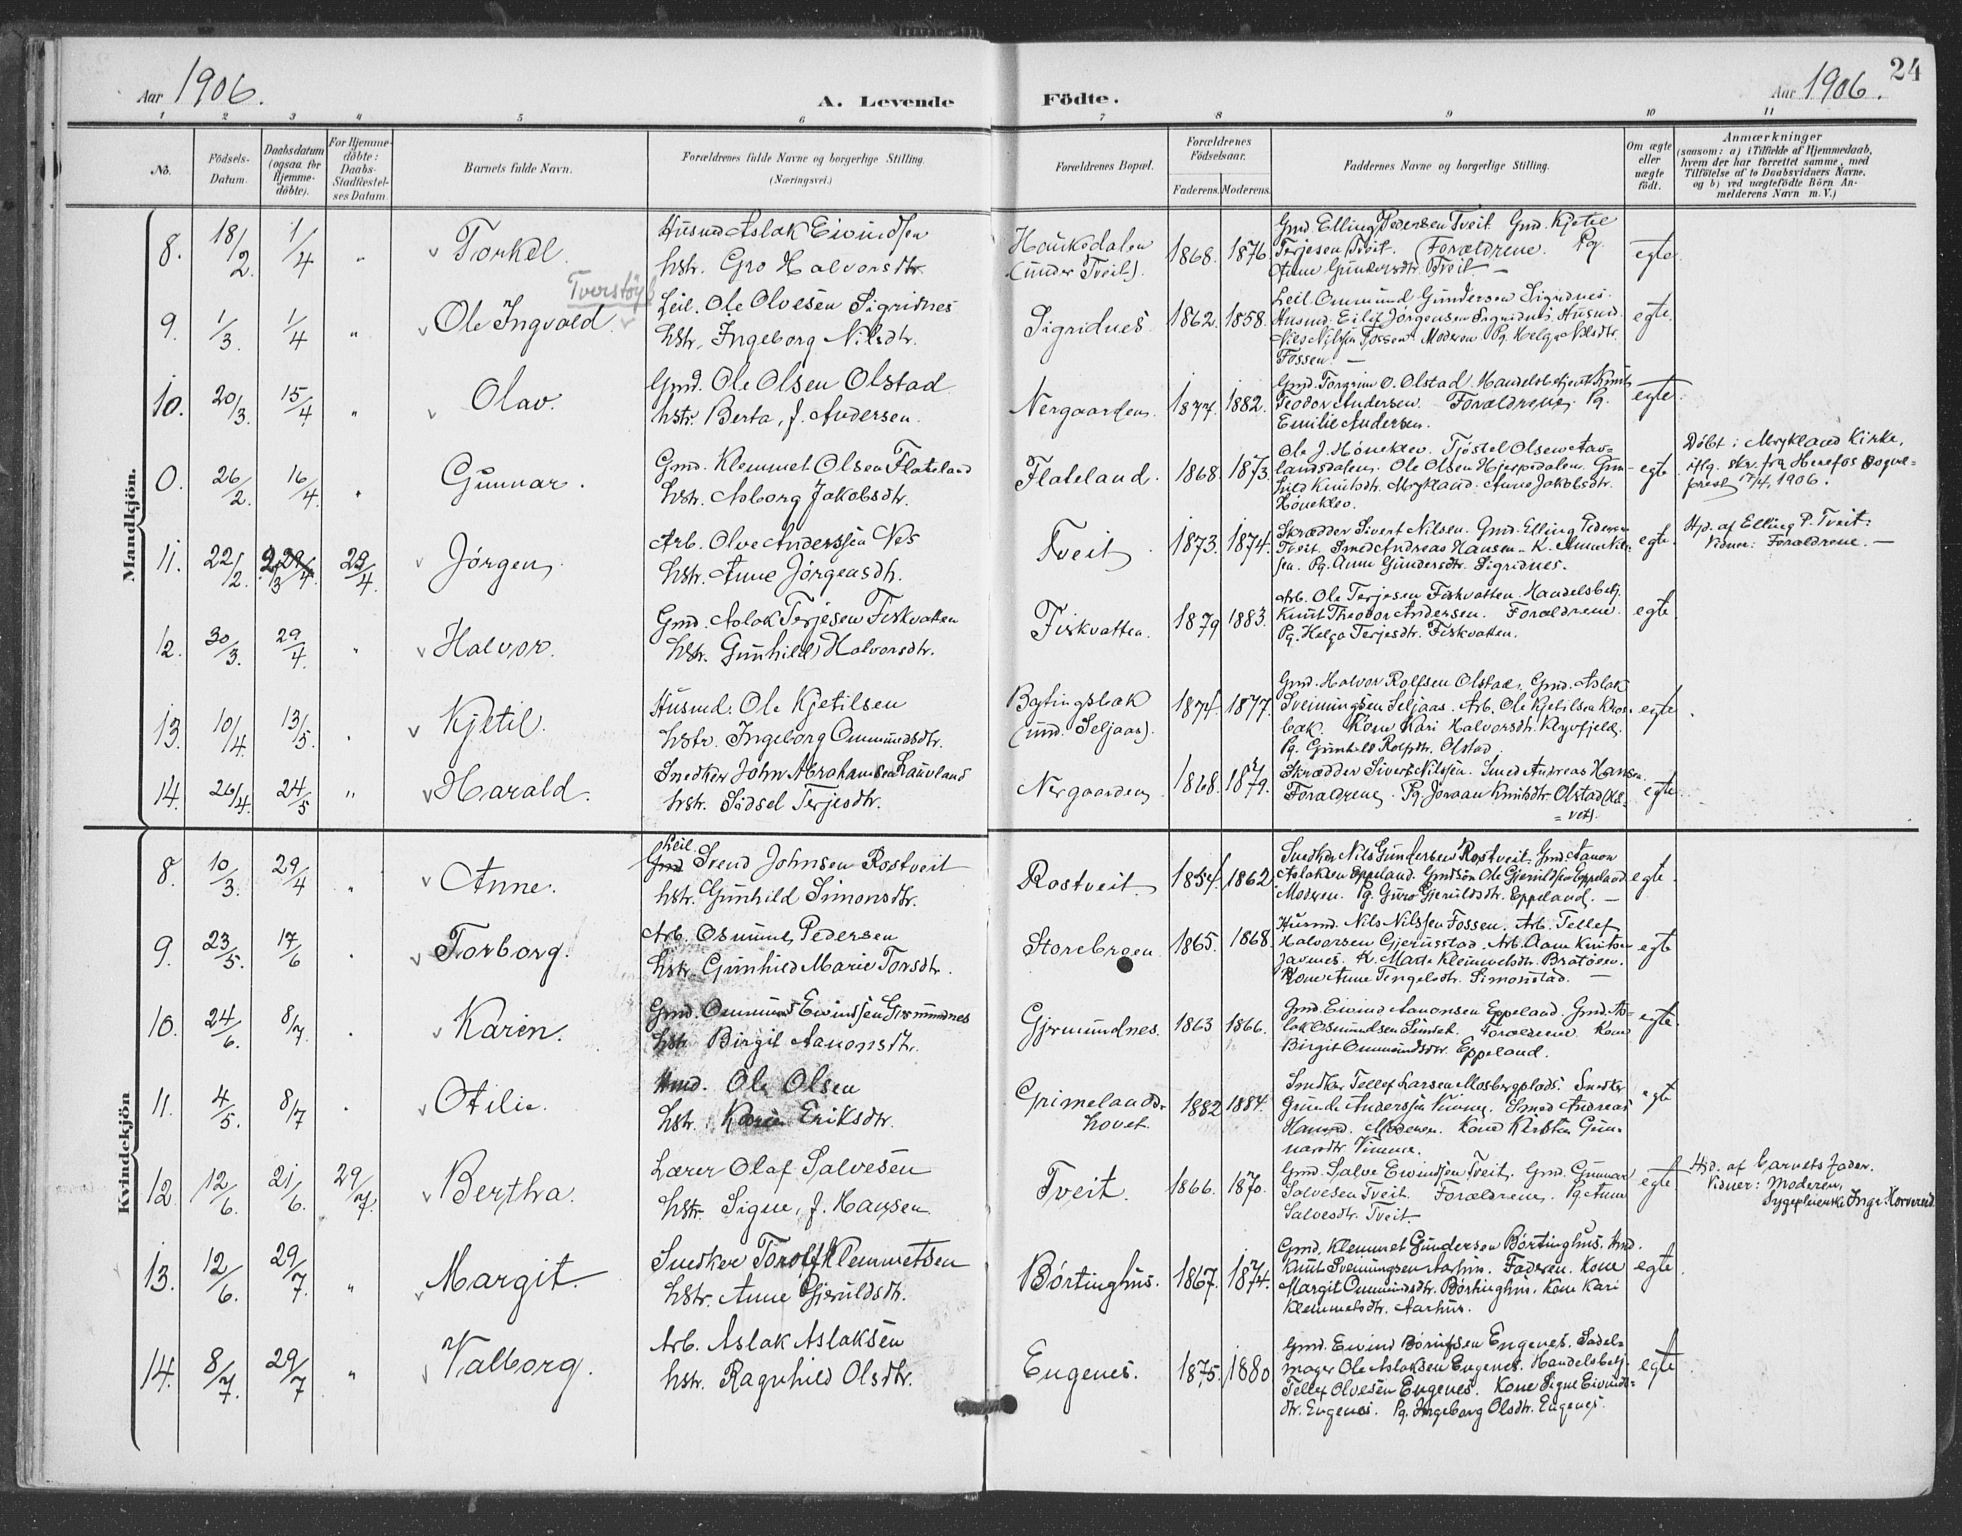 24
Aar 1906.
A. Levende Födte.
Aar 1906.
1 2 3 4 5 6 7 8 9 10 11
No.
Födsels-
Datum.
Daabsdatum
(ogsaa for
Hjemme-
döbte).
For Hjemme-
döbte:
Daabs-
Stadfæstel-
ses Datum.
Barnets fulde Navn.
Forældrenes fulde Navne og borgerlige Stilling.
(Næringsvei.)
Forældrenes Bopæl.
Forældrenes
Födselsaar.
Faderens. Moderens.
Faddernes Navne og borgerlige Stilling.
Om ægte
eller
uægte
födt.
Anmærkninger
(saasom: a) i Tilfælde af Hjemmedaab,
hvem der har forrettet samme, med
Tilföielse af to Daabsvidners Navne,
og b) ved uægtefödte Börn An-
melderens Navn m. V.)
Mandkjön.
8. 18/2. 1/4 " Torkel.
Husmd Aslak Eivindsen
hstr. Gro Halvorsdtr.
Haukedalen
(under Tveit).
1868. 1876.
Gmd. Elling Pedersen Tveit Gmd. Kjetil
Terjesen Tveit. Forældrene. Pg.
Anne Gundersdtr. Tveit. —
egte.
Tverstøyl
9. 1/3. 1/4 " Ole Ingvald.
Leil. Ole Olvesen Sigridnes
hstr. Ingeborg Nilsdtr.
Sigridnes. 1862. 1858.
Leil Ommund Gundersen Sigridnes.
Husmd. Eilif Jørgensen Sigridnes. Husmd.
Niels Nilsen Fossen. Moderen. Pg. Helga Nilsdtr.
Fossen. —
egte.
10. 20/3. 15/4 " Olav.
Gmd. Ole Olsen Olstad
hstr. Berta, f. Andersen.
Nergaarden. 1877. 1882.
Gmd. Torgrim O. Olstad. Handelsbetjent Knut
Teodor Andersen. Forældrene. Pg.
Emilie Andersen.
egte.
0. 26/2. 16/4 " Gunnar.
Gmd. Klemmet Olsen Flateland
hstr. Asborg Jakobsdtr.
Flateland. 1868. 1873.
Ole J. Høneklev. Tjøstel Olsen Stav-
landsdalen. Ole Olsen Hjerpedalen. Gun-
hild Knutsdtr. Mykland. Anne Jakobsdtr.
Høneklev.
egte.
Døbt i Mykland Kirke,
iflg. skr. fra Herefos Sogne-
prest 17/4 1906.
11. 22/2. 2/3 29/4. Jørgen.
Arb. Olve Anderssen Nes
hstr. Anne Jørgensdtr.
Tveit. 1873. 1874.
Skrædder Sivert Nilsen. Gmd. Elling Pedersen
Tveit. Smed Andreas Hansen. K. Anne Nil-
sen. Pg. Anne Gundersdtr. Sigridnes.
egte.
Hjd. af Elling P. Tveit:
Vidner: Forældrene. —
12. 30/3. 29/4. " Halvor.
Gmd. Aslak Terjesen Fiskvatten
hstr. Gunhild Halvorsdtr.
Fiskvatten. 1879 1883.
Arb. Ole Terjesen Fiskvatten. Handelsbetj.
Knut Theodor Andersen. Forældrene.
Pg. Helga Terjesdtr. Fiskvatten.
egte
13. 10/4. 13/5. " Kjetil.
Husmd. Ole Kjetilsen
hstr. Ingeborg Ommundsdtr.
(und. Seljaas).
1874. 1877.
Gmd. Halvor Rolfsen Olstad. Gmd. Aslak
Sveinungsen Seljaas. Arb. Ole Kjetilsen Kros-
bak. Kone Kari Halvorsdtr. Klyvfjeld.
Pg. Gunhild Rolfsdtr. Olstad.
egte.
14. 26/4. 24/5 " Harald.
Snedker John Abrahamsen Lauvland
hstr. Sidsel Terjesdtr.
Nergaarden 1868. 1879.
Skrædder Sivert Nilssen. Smed Andreas Hansen.
Forældrene. Pg. Joraan Knutsdtr. Olstad
egte
Kvindekjön
8. 10/3. 29/4 " Anne.
Leil.
Svend Johnsen Rostveit
hstr. Gunhild Simonsdtr.
Rostveit 1854. 1862
Snedker Nils Gundersen Rostveit. Gmd. Aanon
Aslaksen Eppeland. Gmdsøn Ole Gjeruldsen Eppeland
Moderen. Pg. Guro Gjeruldsdtr. Eppeland. —
egte.
9. 23/5. 17/6 " Torborg.
Arb. Osmund Pedersen
hstr. Gunhild Marie Torsdtr.
Storebroen. 1865. 1868.
Husmd. Nils Nilssen Fossen. Arb. Tellef
Halvorsen Gjerusstad. Arb. Aanon Knuts-
Javnes. K. Marte Klemmetsdtr. Bratøen.
Kone Anne Tengelsdtr. Simonstad. —
egte
10. 24/6. 8/7. " Karen.
Gmd. Ommund Eivindsen Gjermundnes
hstr. Birgit Aanonsdtr.
Gjermundnes. 1863 1866.
Gmd. Eivind Aanonsen Eppeland. Gmd. As-
lak Osmundsen Simstad. Forældrene. Kone
Birgit Ommundsdtr. Eppeland.
egte.
11. 4/5. 8/7 " Otilie.
Hmd. Ole Olsen
hstr. Karen Eriksdtr.
Grimelands-
hovet.
1882 1884.
Snedker Tellef Larsen Mosbergplads. Snedker
Gunde Anderssen Vimme. Smed Andreas
Hansen. Moderen. Kone Kirsten Gun-
narsdtr. Vimme.
egte
12 12/6. 21/6. 29/7. Bertha.
Lærer Olaf Salvesen
hstr. Signe, f. Hansen
Tveit. 1866. 1870.
Gmd. Salve Eivindsen Tveit. Gmd. Gunnar
Salvesen Tveit. Forældrene. Pg Anne
Salvesdtr. Tveit.
egte.
Hjd. af barnets fader.
Vidner: Moderen,
Sygepleierske Inge Korvereid
13. 12/6. 29/7. " Margit.
Snedker Torolf Klemmetsen
hstr. Anne Gjeruldsdtr.
Børtinghus. 1867. 1874.
Gmd. Klemmet Gundersen Børtinghus. Hmd.
Knut Sveinungsen Aarhus. Faderen. Kone
Margit Ommundsdtr. Børtinghus. Kone Kari
Klemmetsdtr. Aarhus.
egte.
14. 8/7. 29/7 " Valborg.
Arb. Aslak Aslaksen
hstr. Ragnhild Olsdtr.
Eugenes. 1875. 1880
Gmd. Eivind Børufsen Engenes. Sadel-
mager Ole Aslaksen Engenes. Handelsbetj.
Tellef Olvesen Engenes. Kone Signe Eivinds-
dtr. Engenes. Pg. Ingeborg Olsdtr. Engenes.
egte